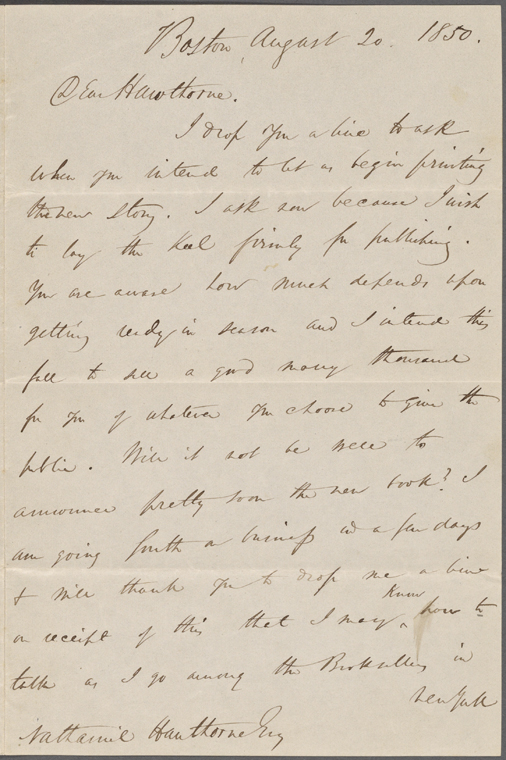 Boston, August 20. 1850.
Dear Hawthorne.
I drop you a line to ask
when you intend to let us begin printing
the new story. I ask now because I wish
to lay the keel firmly for publishing.
You are aware how much depends upon
getting ready in season and I intend this
fall to sell a good many thousand
for you of whatever you choose to give the
public. Will it not be well to
announce pretty soon the new book? I
am going South on business in a few days
& will thank you to drop me a line
on receipt of this that I may know how to
talk as I go among the Booksellers in
New York
Nathaniel Hawthorne Esq